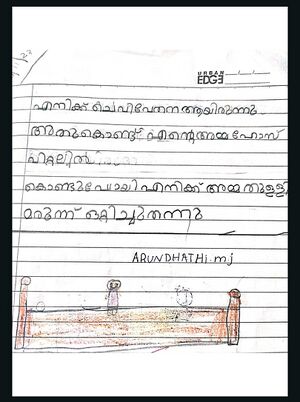 URBAN
EDGE
എനിക്ക് ചെവിവേതന ആയിരുന്നു.
അതുകൊണ്ട് എന്റെ അമ്മ ഹോസ്
പിറ്റലിൽ
കൊണ്ടുപോയി എനിക്ക് അമ്മ തുള്ളി
മരുന്ന് ഒറ്റിച്ചുതന്നു
ARUNDHATHi.mj